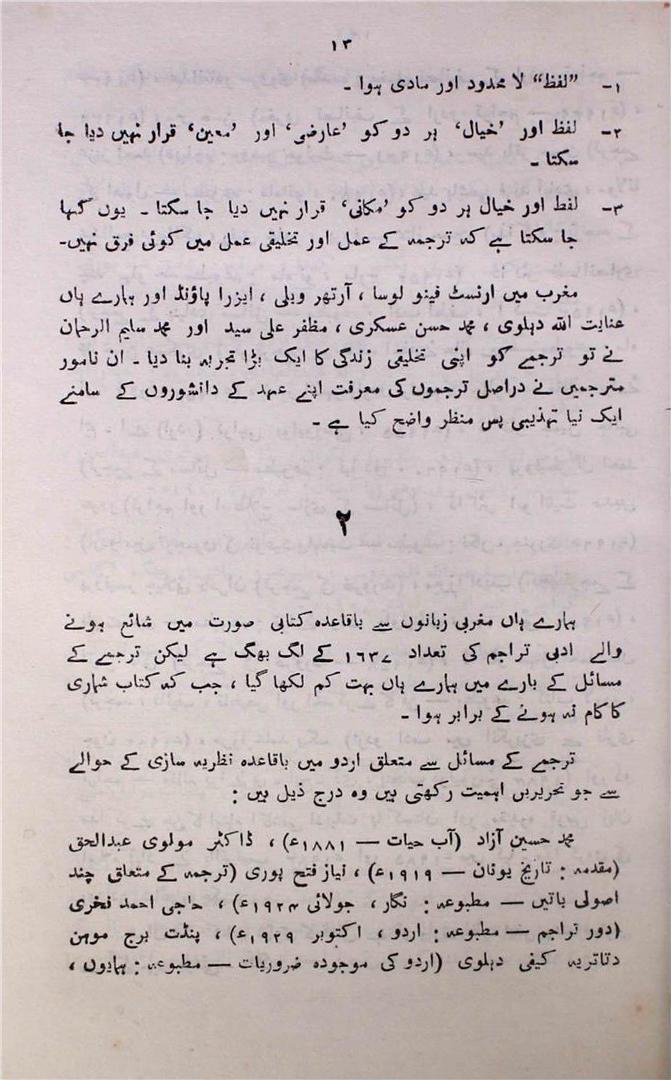 ۱۳
۱۔ ”لفظ“ لا محدود اور مادی ہوا ۔
۲۔ لفظ اور ’خیال‘ ہر دو کو ’عارضی‘ اور ’معین‘ قرار نہیں دیا جا
سکتا ۔
۳۔ لفظ اور خیال ہر دو کو ’مکانی‘ قرار نہیں دیا جا سکتا ۔ یوں کہا
جا سکتا ہے کہ ترجمہ کے عمل اور تخلیقی عمل میں کوئی فرق نہیں۔
مغرب میں ارنسٹ فینو لوسا ، آرتھر ویلی ، ایزرا پاؤنڈ اور ہمارے ہاں
عنایت اللہ دہلوی ، محمد حسن عسکری ، مظفر علی سید اور محمد سلیم الرحمان
نے تو ترجمے کو اپنی تخلیقی زندگی کا ایک بڑا تجربہ بنا دیا ۔ ان نامور
مترجمیں نے دراصل ترجموں کی معرفت اپنے عہد کے دانشوروں کے سامنے
ایک نیا تہذیبی پس منظر واضح کیا ہے ۔
۲
ہمارے ہاں مغربی زبانوں سے باقاعدہ کتابی صورت میں شائع ہونے
والے ادبی تراجم کی تعداد ۱۶۳۷ کے لگ بھگ ہے لیکن ترجمے کے
مسائل کے بارے میں ہمارے ہاں بہت کم لکھا گیا ، جب کہ کتاب شماری
کا کام نہ ہونے کے برابر ہوا ۔
ترجمے کے مسائل سے متعلق اردو میں باقاعدہ نظریہ سازی کے حوالے
سے جو تحریریں اہمیت رکھتی ہیں وہ درج ذیل ہیں :
محمد حسین آزاد (آب حیات — ۱۸۸۱ء) ، ڈاکٹر مولوی عبدالحق
(مقدمہ : تاریخ یونان — ۱۹۱۹ء) ، نیاز فتح پوری (ترجمہ کے متعلق چند
اصولی باتیں — مطبوعہ : نگار ، جولائی ۱۹۲۴ء) ، حاجی احمد فخری
(دور تراجم — مطبوعہ : اردو ، اکتوبر ۱۹۲۹ء) ، پنڈت برج موہن
دتاتریہ کیفی دہلوی (اردو کی موجودہ ضروریات — مطبوعہ : ہمایوں ،